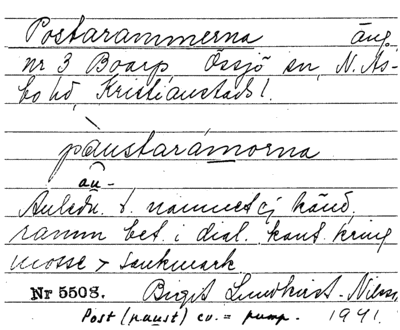 Postarammerna äng,
nr 3 Boarp Össjö sn, N. Ås-
bo hd, Kristianstads l.
påustarámorna
au-
Anledn. t. namnet ej känd,
ramm bet. i dial. kant kring
mosse > sankmark
Nr 5508. Birgit Lundkvist-Nilsson
Post (paust) cv. = pump. 1941.